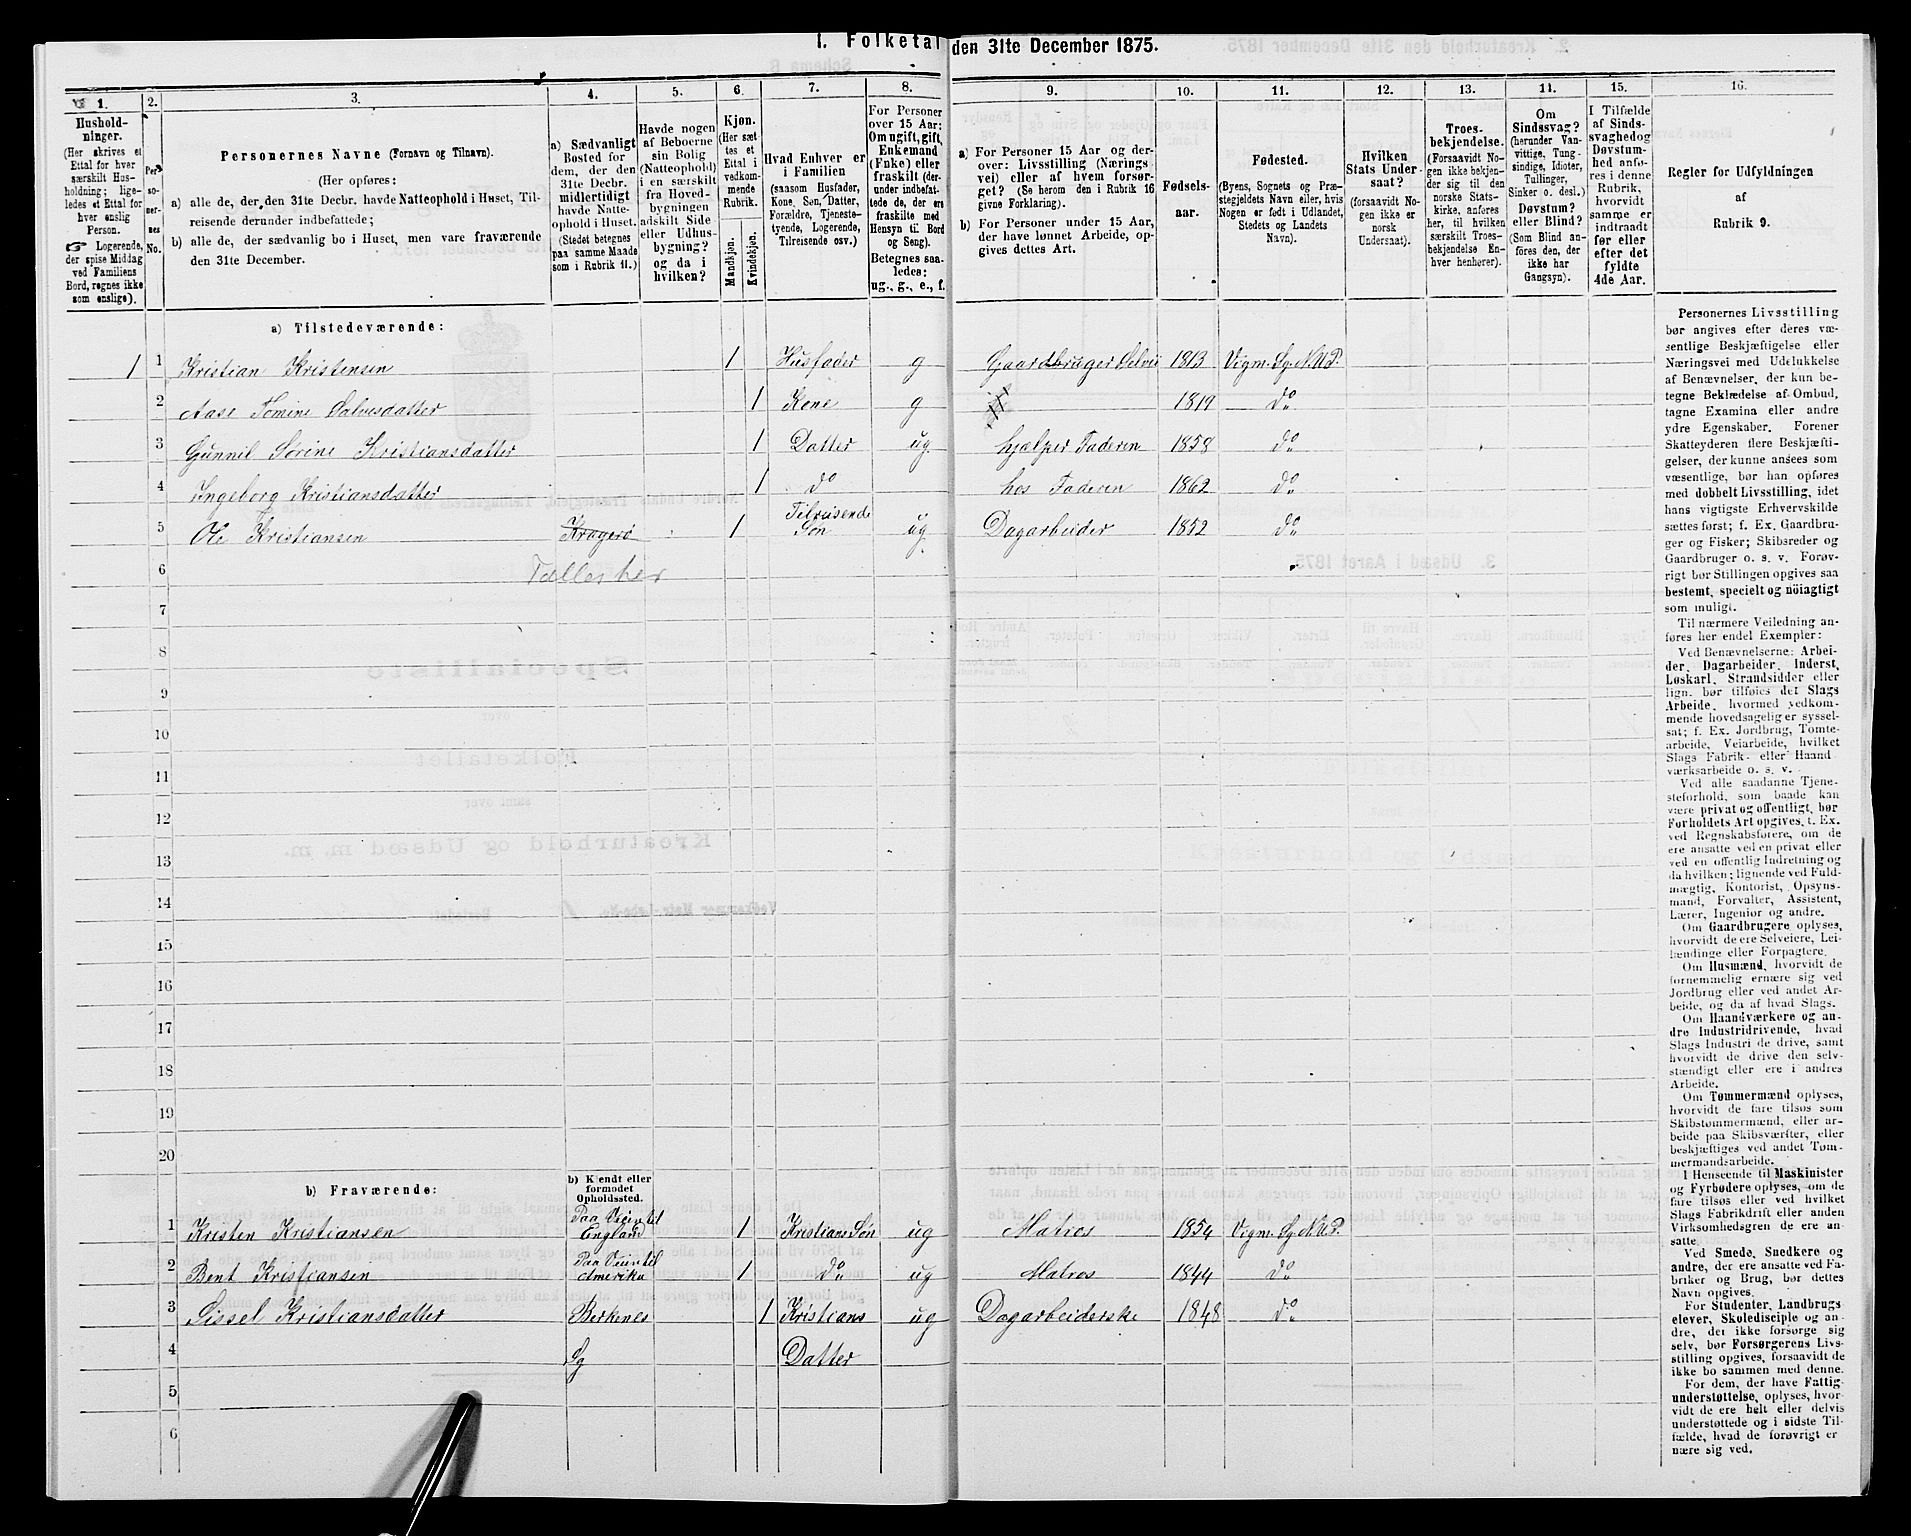 1. Folketal den 31te December 1875.
1.
Hushold-
ninger.
(Her skrives et
Ettal for hver
særskilt Hus-
holdning; lige-
ledes et Ettal for
hver enslig
Person.
Logerende,
der spise Middag
ved Familiens
Bord, regnes ikke
som enslige).
2.
Per-
so-
ner-
nes
No.
3.
Personernes Navne (Fornavn og Tilnavn).
(Her opføres:
a) alle de, der den 31te Decbr. havde Natteophold i Huset, Til-
reisende derunder indbefattede;
b) alle de, der sædvanlig bo i Huset, men vare fraværende
den 31te December.
4.
a) Sædvanligt
Bosted for
dem, der den
31te Decbr.
midlertidigt
havde Natte-
ophold i Huset.
(Stedet betegnes
paa samme Maade
som i Rubrik 11.)
5.
Havde nogen
af Beboerne
sin Bolig
(Natteophold)
i en særskilt
fra Hoved-
bygningen
adskilt Side
eller Udhus-
bygning?
og da i
hvilken?
6.
Kjøn.
(Her sæt-
tes et
Ettal i
vedkom-
mende
Rubrik.
Mandkjøn.
Kvindekjøn.
7.
Hvad Enhver er
i Familien
(saasom Husfader,
Kone, Søn, Datter,
Forældre, Tjeneste-
tyende, Logerende,
Tilreisende osv.)
8.
For Personer
over 15 Aar:
Om ugift, gift,
Enkemand
(Enke) eller
fraskilt (der-
under indbefat-
tede de, der ere
fraskilte med
Hensyn til Bord
og Seng).
Betegnes saa-
ledes:
ug., g., e., f.
9.
a) For Personer 15 Aar og der-
over: Livsstilling (Nærings-
vei) eller af hvem forsør-
get? (Se herom den i Rubrik 16
givne Forklaring).
b) For Personer under 15 Aar,
der have lønnet Arbeide, op-
gives dettes Art.
10.
Fødsels-
aar.
11.
Fødested.
(Byens, Sognets og Præ-
stegjeldets Navn eller, hvis
Nogen er født i Udlandet,
Stedets og Landets
Navn).
12.
Hvilken
Stats Under-
saat?
(forsaavidt No-
gen ikke er
norsk
Undersaat).
13.
Troes-
bekjendelse.
(Forsaavidt No-
gen ikke bekjen-
der sig til den
norske Stats-
kirke, anføres
her, til hvilken
særskilt Troes-
bekjendelse En-
hver henhører).
14.
Om
Sindssvag?
(herunder Van-
vittige, Tung-
sindige, Idioter,
Tullinger,
Sinker o. desl.)
Døvstum?
eller Blind?
(Som Blind an-
føres den, der
ikke har
Gangsyn).
15.
I Tilfælde
af Sinds-
svaghed og
Døvstum-
hed anfø-
res i denne
Rubrik,
hvorvidt
samme er
indtraadt
før eller
efter det
fyldte
4de Aar.
16.
Regler for Udfyldningen
af
Rubrik 9.
a) Tilstedeværende:
1 1 Kristian Kristensen 1 Husfader g Gaardbruger Selvei 1813 Vigm. Sg. N.M.P.
2 Aase Tomine Salvesdatter 1 Kone g 1819 do
3 Gunnil Sørine Kristiansdatter 1 Datter ug hjælper Faderen 1858 do
4 Ingeborg Kristiansdatter 1 do hos Faderen 1862 do
5 Ole Kristiansen Kragerø 1 Tilreisende Søn ug Dagarbeider 1852 do
6 Tælles her
7
8
9
10
11
12
13
14
15
16
17
18
19
20
b) Fraværende:
b) Kjendt eller
formodet
Opholdssted.
1 Kristen Kristiansen Paa Veien til England 1 Kristians Søn ug Matros 1854 Vigm. Sg. N.M.P.
2 Bent Kristiansen Paa Veien til Amerika 1 do ug Matros 1844 do
3 Sissel Kristiansdatter Berkenes 1 Kristians ug Dagarbeiderske 1848 do
4 Sg Datter
5
6
Personernes Livsstilling
bør angives efter deres væ-
sentlige Beskjæftigelse eller
Næringsvei med Udelukkelse
af Benævnelser, der kun be-
tegne Beklædelse af Ombud,
tagne Examina eller andre
ydre Egenskaber. Forener
Skatteyderen flere Beskjæfti-
gelser, der kunne ansees som
væsentlige, bør han opføres
med dobbelt Livsstilling, idet
hans vigtigste Erhvervskilde
sættes først; f. Ex. Gaardbru-
ger og Fisker; Skibsreder og
Gaardbruger o. s. v. Forøv-
rigt bør Stillingen opgives saa
bestemt, specielt og nöiagtigt
som muligt.
Til nærmere Veiledning an-
føres her endel Exempler:
Ved Benævnelserne: Arbei-
der, Dagarbeider, Inderst,
Løskarl, Strandsidder eller
lign. bør tilføies det Slags
Arbeide, hvormed vedkom-
mende hovedsagelig er syssel-
sat; f. Ex. Jordbrug, Tomte-
arbeide, Veiarbeide, hvilket
Slags Fabrik- eller Haand
værksarbeide o. s. v.
Ved alle saadanne Tjene-
steforhold, som baade kan
være privat og offentligt, bør
Forholdets Art opgives, t. Ex.
ved Regnskabsførere, om de
ere ansatte ved en privat eller
ved en offentlig Indretning og
da hvilken; lignende ved Fuld-
mægtig, Kontorist, Opsyns-
mand, Forvalter, Assistent,
Lærer, Ingeniør og andre.
Om Gaardbrugere oplyses,
hvorvidt de ere Selveiere, Lei-
lændinge eller Forpagtere.
Om Husmænd, hvorvidt de
fornemmelig ernære sig ved
Jordbrug eller ved andet Ar-
beide, og da af hvad Slags.
Om Haandværkere og an-
dre Industridrivende, hvad
Slags Industri de drive, samt
hvorvidt de drive den selv-
stændigt eller ere i andres
Arbeide.
Om Tømmermænd oplyses,
hvorvidt de fare tilsøs som
Skibstømmermænd, eller ar-
beide paa Skibsværfter, eller
beskjæftiges ved andet Tøm-
mermandsarbeide.
I Henseende til Maskinister
og Fyrbødere oplyses, om de
fare tilsøs eller ved hvilket
Slags Fabrikdrift eller anden
Virksomhedsgren de ere an-
satte.
Ved Smede, Snedkere og
andre, der ere ansatte ved Fa-
briker og Brug, bør dettes
Navn opgives.
For Studenter, Landbrugs-
elever, Skoledisciple og an-
dre, der ikke forsørge sig
selv, bør Forsørgerens Livs-
stilling opgives, forsaavidt de
ikke bo sammen med denne.
For dem, der have Fattig-
understøttelse, oplyses, hvor-
vidt de ere helt eller delvis
understøttede og i sidste Til-
fælde, hvad de forøvrigt er-
nære sig ved.